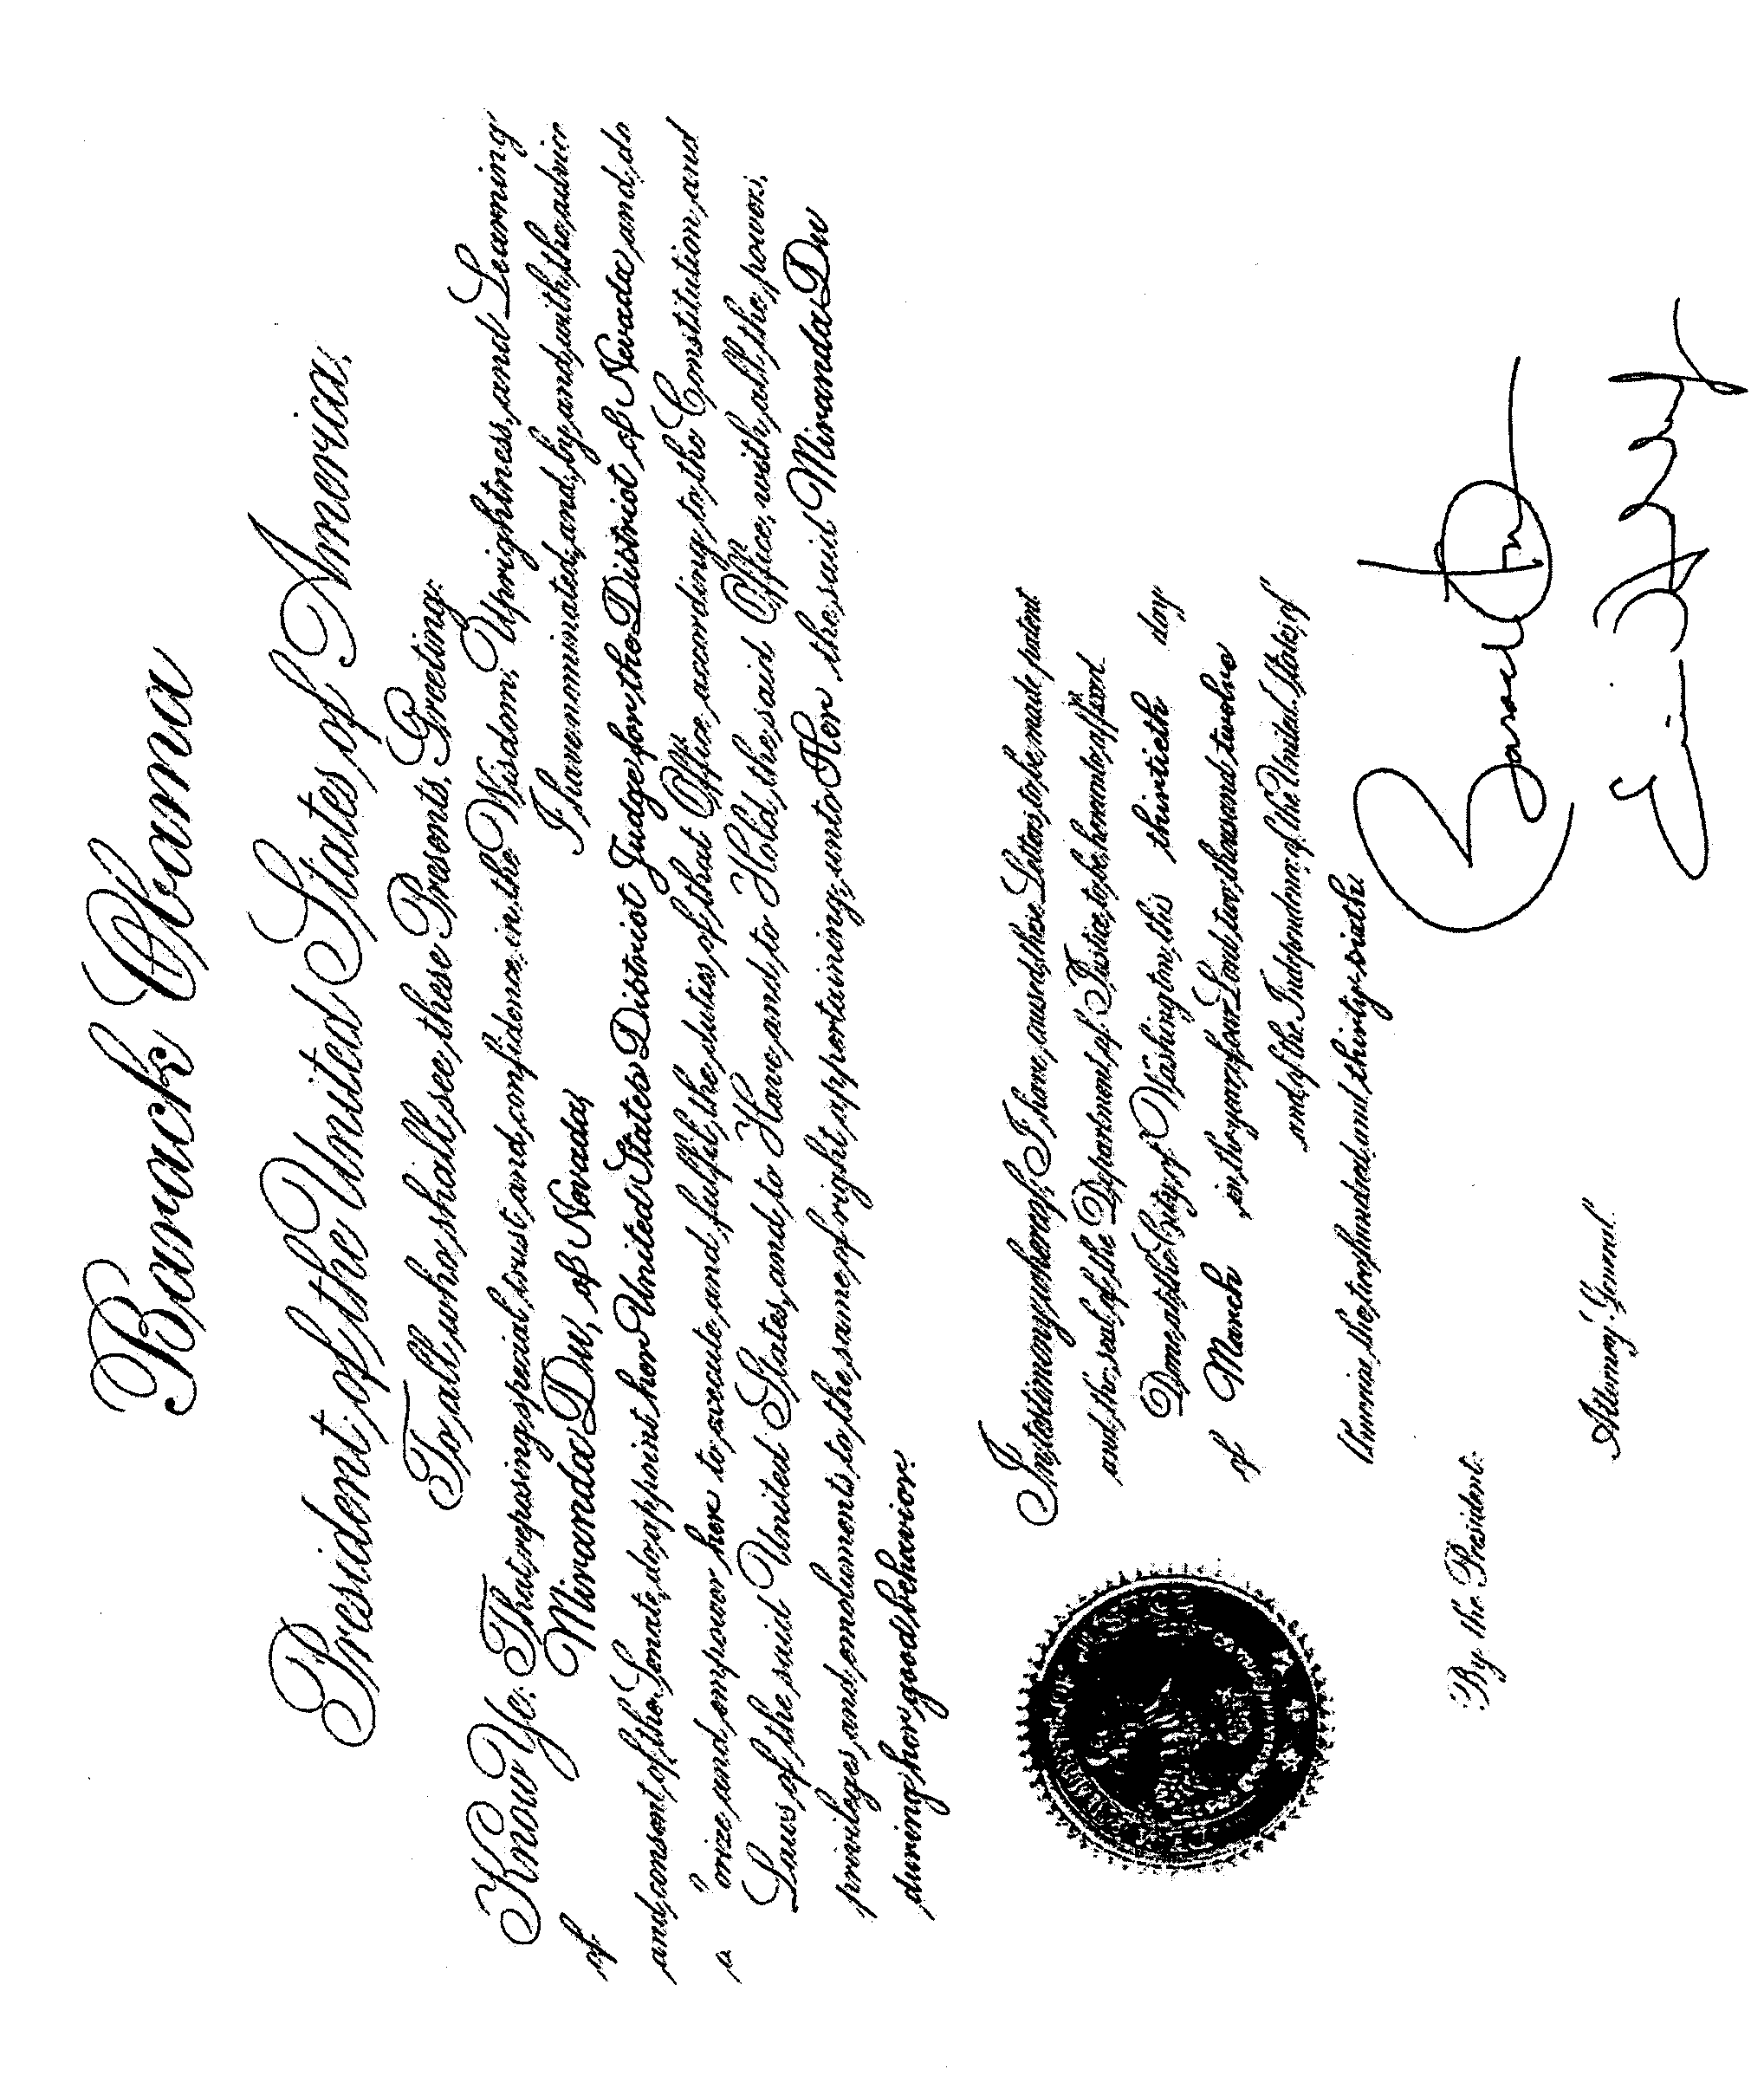 Barack Obama
President of the United States of America.
To all who shall see these Presents, Greeting:
Know Ye: That reposing special trust and confidence in the Wisdom, Uprightness, and Learning
of Miranda Du, of Nevada, I have nominated, and, by and with the advice
and consent of the Senate, do appoint her United States District Judge for the District of Nevada and do
orize and empower her to execute and fulfil the duties of that Office according to the Constitution and
Laws of the said United States, and to Have and to Hold the said Office, with all the powers,
privileges and emoluments to the same of right appertaining, unto Her the said Miranda Du
during her good behavior.
In testimony whereof, I have caused these Letters to be made patent
and the seal of the Department of Justice to be hereunto affixed.
Done at the City of Washington, this thirtieth day
of March in the year of our Lord two thousand twelve
and of the Independence of the United States of
America the two hundred and thirty-sixth.
Barack Obama
By the President:
Eric Holder
Attorney General.